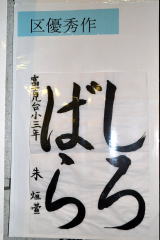 区優秀作
しろ
ばら
富見台小三年
朱 垣蕾